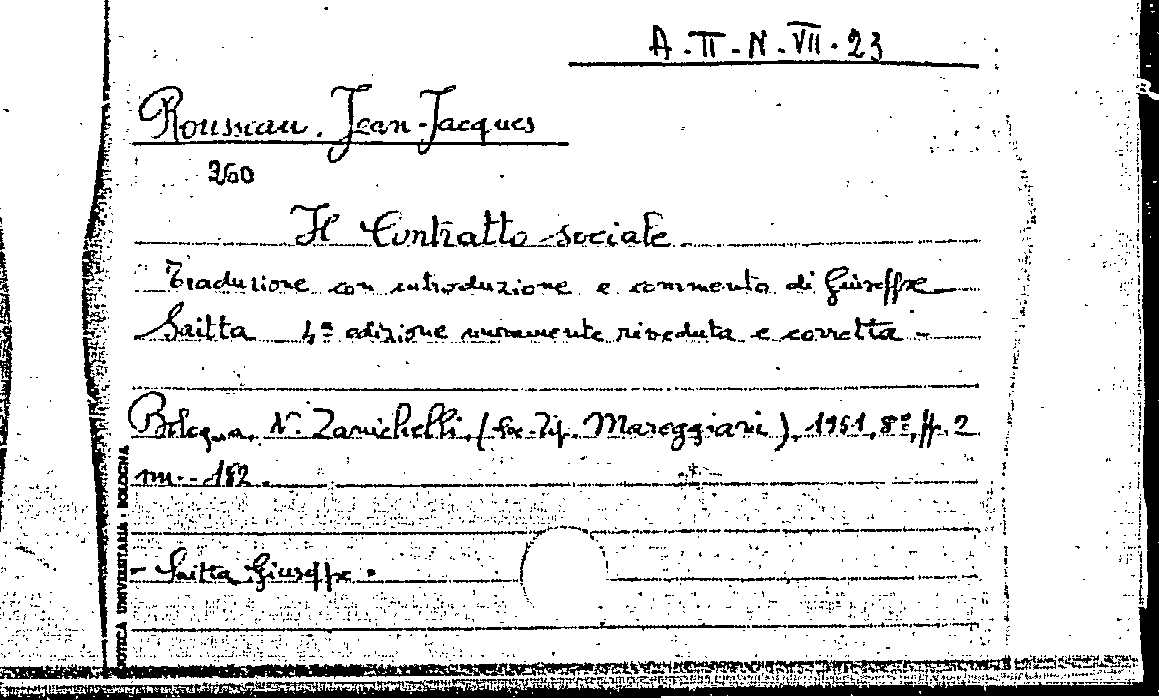 A-II-N-VII-23
Rousseau, Jean-Jacques
260
Il Contratto sociale
Traduzione con introduzione e commento di Giuseppe
Saitta 4ª edizione nuovamente riveduta e corretta -
Bologna, N. Zanichelli, (Soc-Tip. Mareggiani), 1951, 8º, pp. 2
nn-182.
- Saitta Giuseppe.
OTECA UNIVERSITARIA - BOLOGNA